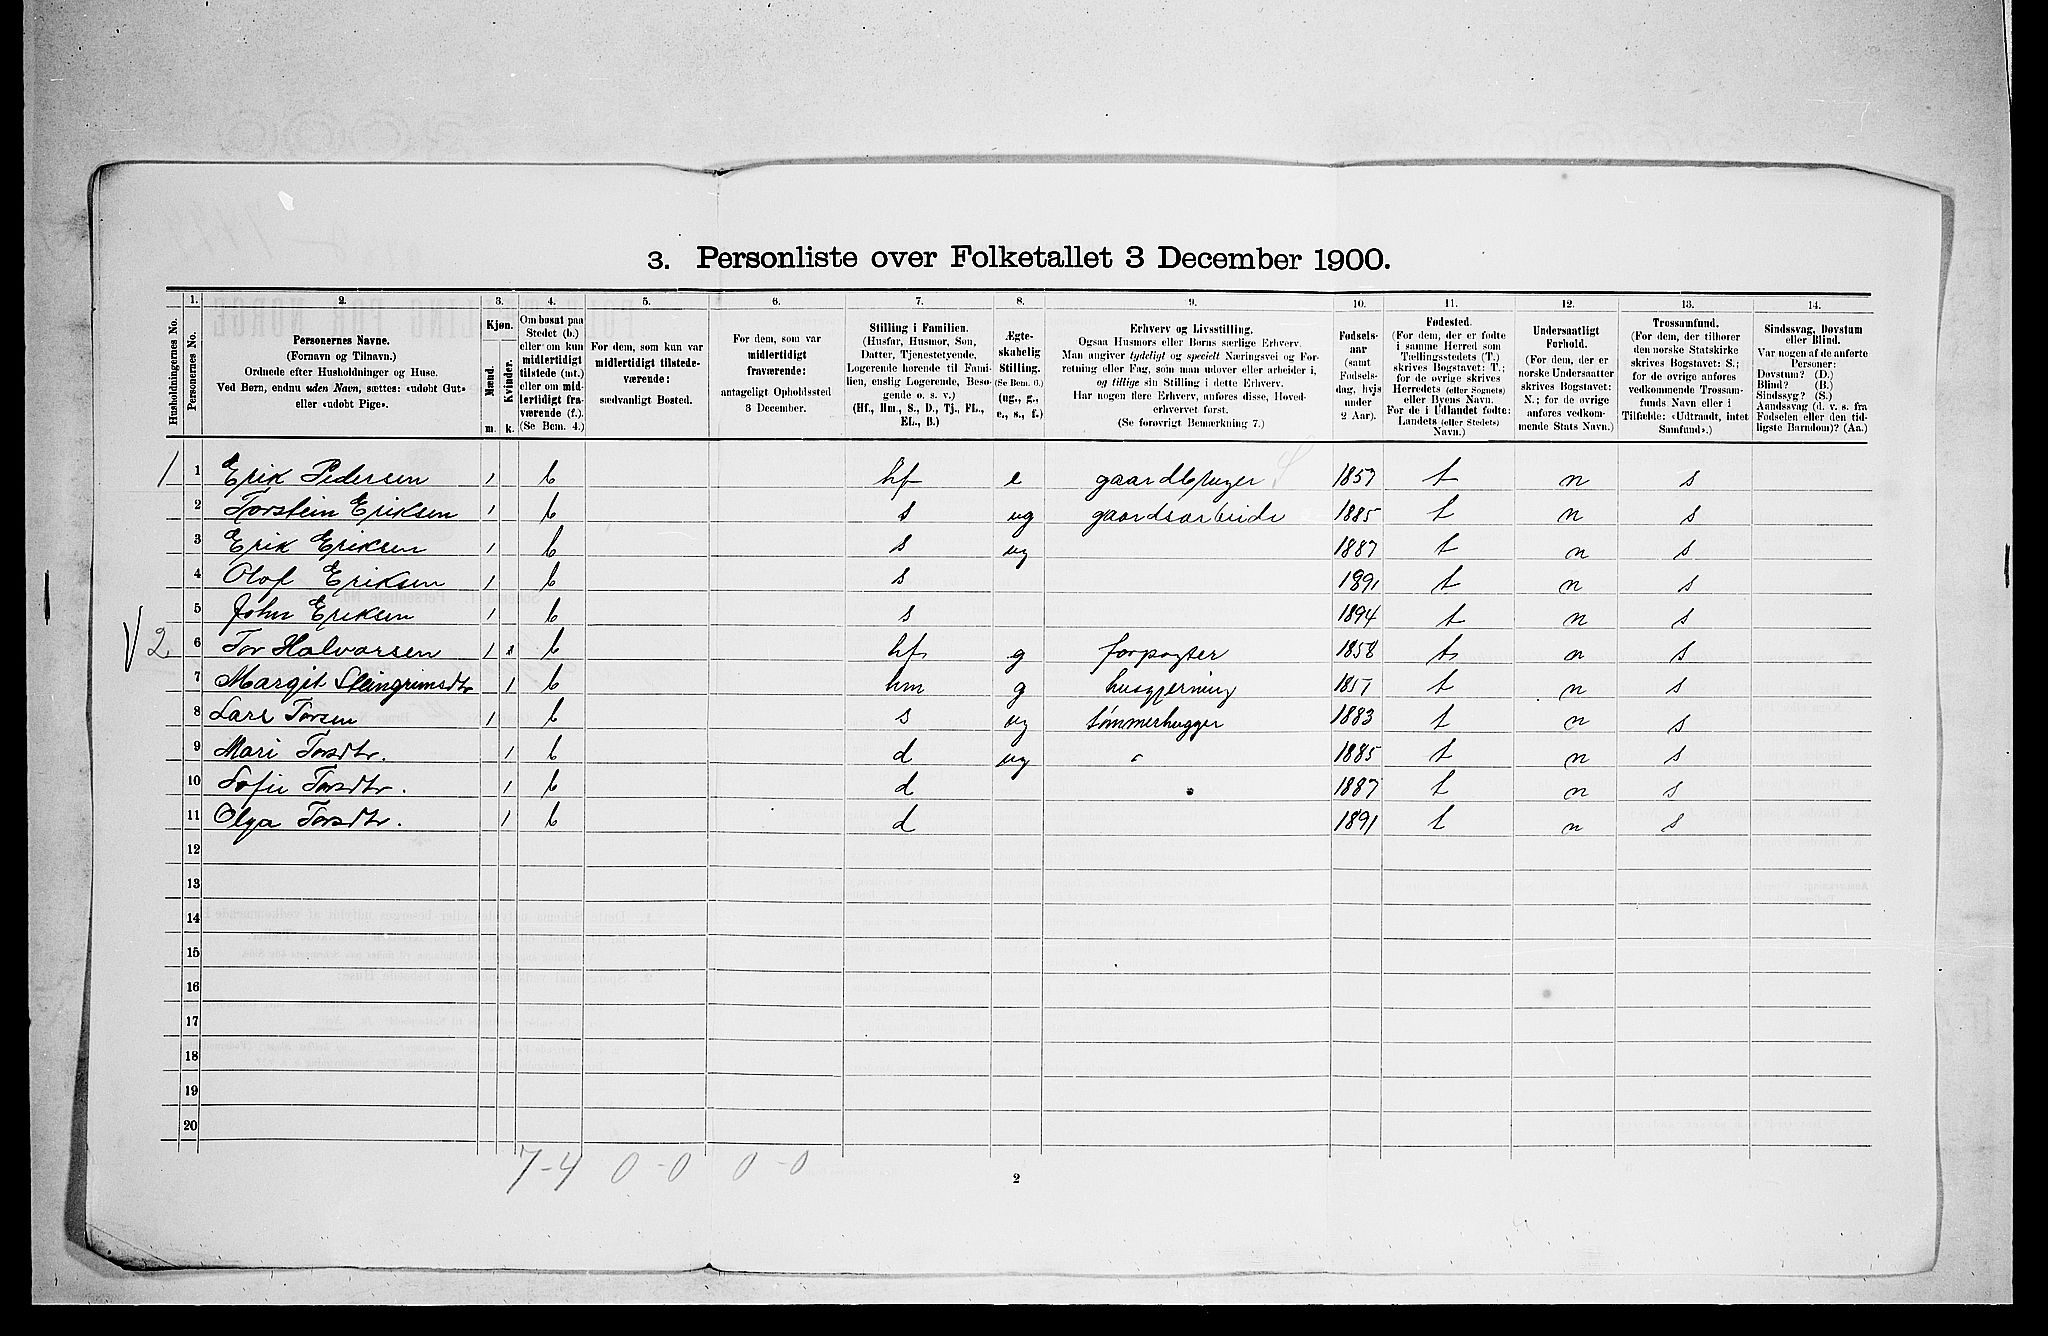 3. Personliste over Folketallet 3 December 1900.
1. 2. 3. 4. 5. 6. 7. 8. 9. 10. 11. 12. 13. 14.
Husholdningernes No.
Personernes No.
Personernes Navne.
(Fornavn og Tilnavn.)
Ordnede efter Husholdninger og Huse.
Ved Børn, endnu uden Navn, sættes: «udobt Gut»
eller «udobt Pige».
Kjøn.
Mænd. Kvinder.
m. k.
Om bosat paa
Stedet (b.)
eller om kun
midlertidigt
tilstede (mt.)
eller om mid-
lertidigt fra-
værende (f.).
(Se Bem. 4.)
For dem, som kun var
midlertidigt tilstede-
værende:
sædvanligt Bosted.
For dem, som var
midlertidigt
fraværende:
antageligt Opholdssted
3 December.
Stilling i Familien.
(Husfar, Husmor, Søn,
Datter, Tjenestetyende,
Logerende hørende til Fami-
lien, enslig Logerende, Besø-
gende o. s. v.)
(Hf., Hm., S., D., Tj., FL.,
EL., B.)
Ægte-
skabelig
Stilling.
(Se Bem. 6.)
(ug., g.,
e., s., f.)
Erhverv og Livsstilling.
Ogsaa Husmors eller Børns særlige Erhverv.
Man angiver tydeligt og specielt Næringsvei og For-
retning eller Fag, som man udøver eller arbeider i,
og tillige sin Stilling i dette Erhverv.
Har nogen flere Erhverv, anføres disse, Hoved-
erhvervet først.
(Se forøvrigt Bemærkning 7.)
Fødsels-
aar
(samt
Fødsels-
dag, hvis
under
2 Aar).
Fødested.
(For dem, der er fødte
i samme Herred som
Tællingsstedets (T.)
skrives Bogstavet: T.;
for de øvrige skrives
Herredets (eller Sognets)
eller Byens Navn.
For de i Udlandet fødte:
Landets (eller Stedets)
Navn.)
Undersaatligt
Forhold.
(For dem, der er
norske Undersaatter
skrives Bogstavet:
N.; for de øvrige
anføres vedkom-
mende Stats Navn.)
Trossamfund.
(For dem, der tilhører
den norske Statskirke
skrives Bogstavet: S.;
for de øvrige anføres
vedkommende Trossam-
funds Navn eller i
Tilfælde: «Udtraadt, intet
Samfund».)
Sindssvag, Døvstum
eller Blind.
Var nogen af de anførte
Personer:
Døvstum? (D.)
Blind? (B.)
Sindssyg? (S.)
Aandssvag (d. v. s. fra
Fødselen eller den tid-
ligste Barndom)? (Aa.)
1 1 Erik Pedersen 1 b hf e gaardbruger 1857 t n s
2 Torstein Eriksen 1 b s ug gaardsarbeide 1885 t n s
3 Erik Eriksen 1 b s ug 1887 t n s
4 Olof Eriksen 1 b s 1891 t n s
5 John Eriksen 1 b s 1894 t n s
V 2 6 Tor Halvorsen 1 b hf g forpagter 1858 t n s
7 Margit Steingrimsdtr 1 b hm g husgjerning 1857 t n s
8 Lars Torsen 1 b s ug tømmerhugger 1883 t n s
9 Mari Torsdtr. 1 b d ug 1885 t n s
10 Sofie Torsdtr. 1 b d 1887 t n s
11 Olga Torsdtr. 1 b d 1891 t n s
12
13
14
15
16
17
18
19
20
7-4 0-0 0-0
2